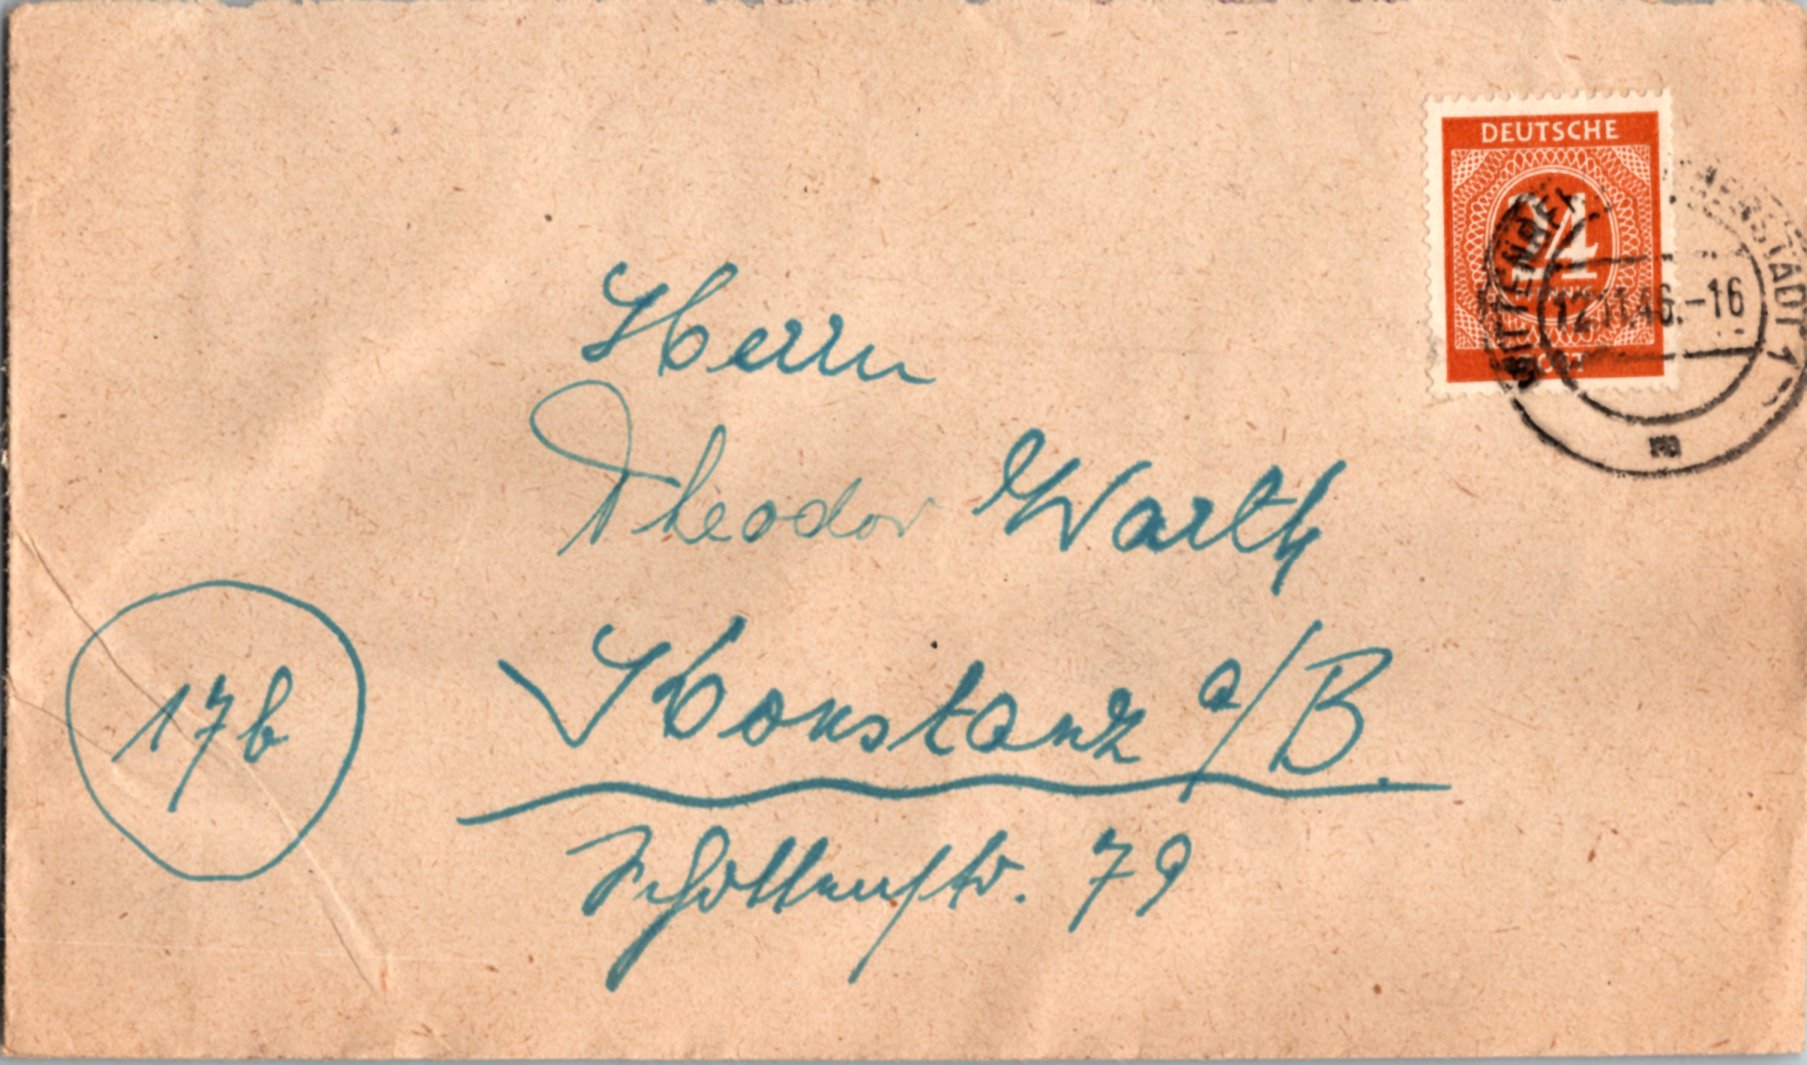 DEUTSCHE
24
POST
WITTENBERG LUTHERSTADT 1
12.11.46.-16
m
Herrn
Theodor Warth
17b
Konstanz a/B.
Schottenstr. 79